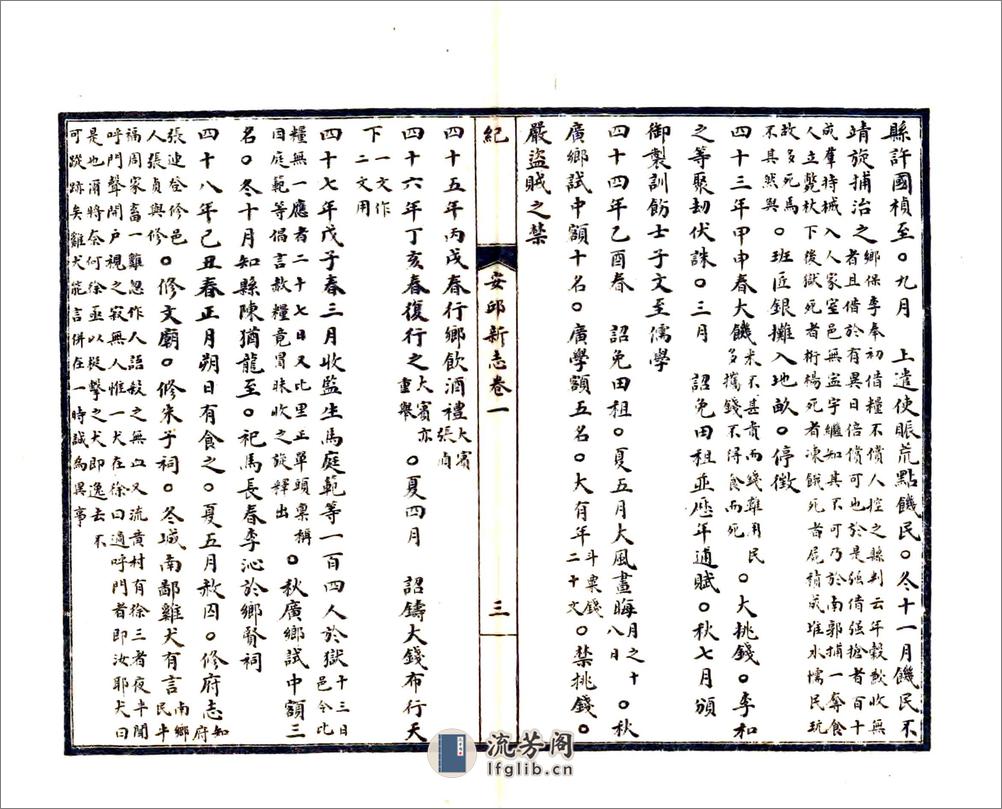 縣許國楨至○九月　上遣使賑荒點饑民○冬十一月饑民不
靖旋捕治之鄉保李奉初借糧不償人控之縣判云年穀歉收無
者且借於有異日倍償可也於是強借強搶者百十
成羣持械入人家室邑無寧宇繼知其不可乃於南郭捕一奪食
人立斃杖下後獄死者桁楊死者凍餓死者屍積成堆水懦民玩
故多死焉
不其然與○班匠銀攤入地畝○停徵
四十三年甲申春大饑米不甚貴而錢難用民
多攜錢不得食而死○大挑錢○李和
之等聚劫伏誅○三月　詔免田租並歷年逋賦○秋七月頒
御製訓飭士子文至儒學
四十四年乙酉春　詔免田租○夏五月大風晝晦月之十
八日○秋
廣鄉試中額十名○廣學額五名○大有年斗粟錢
二十文○禁挑錢○
嚴盜賊之禁
紀
安邱新志卷一
三
四十五年丙戌春行鄉飲酒禮大賓
張貞
四十六年丁亥春復行之大賓亦
重舉○夏四月　詔鑄大錢布行天
下一文作
二文用
四十七年戊子春三月收監生馬庭範等一百四人於獄十三日
邑令比
糧無一應者二十七日又比里正單頭稟稱
因庭範等倡言赦糧竟冒昧收之旋釋出○秋廣鄉試中額三
名○冬十月知縣陳猶龍至○祀馬長春李沁於鄉賢祠
四十八年己丑春正月朔日有食之○夏五月赦囚○修府志知府
張連登修邑
人張貞與修○修文廟○修朱子祠○冬城南鄙雞犬有言南鄉
民半
福周家畜一雞忽作人語殺之無血又流黃村有徐三者夜半聞
呼門聲開戶視之寂無人惟一犬在徐曰適呼門者即汝耶犬曰
是也爾將奈何徐亟以梃擊之犬即逸去不
可蹤跡矣雞犬能言併在一時誠為異事
流芳阁
lfglib.cn